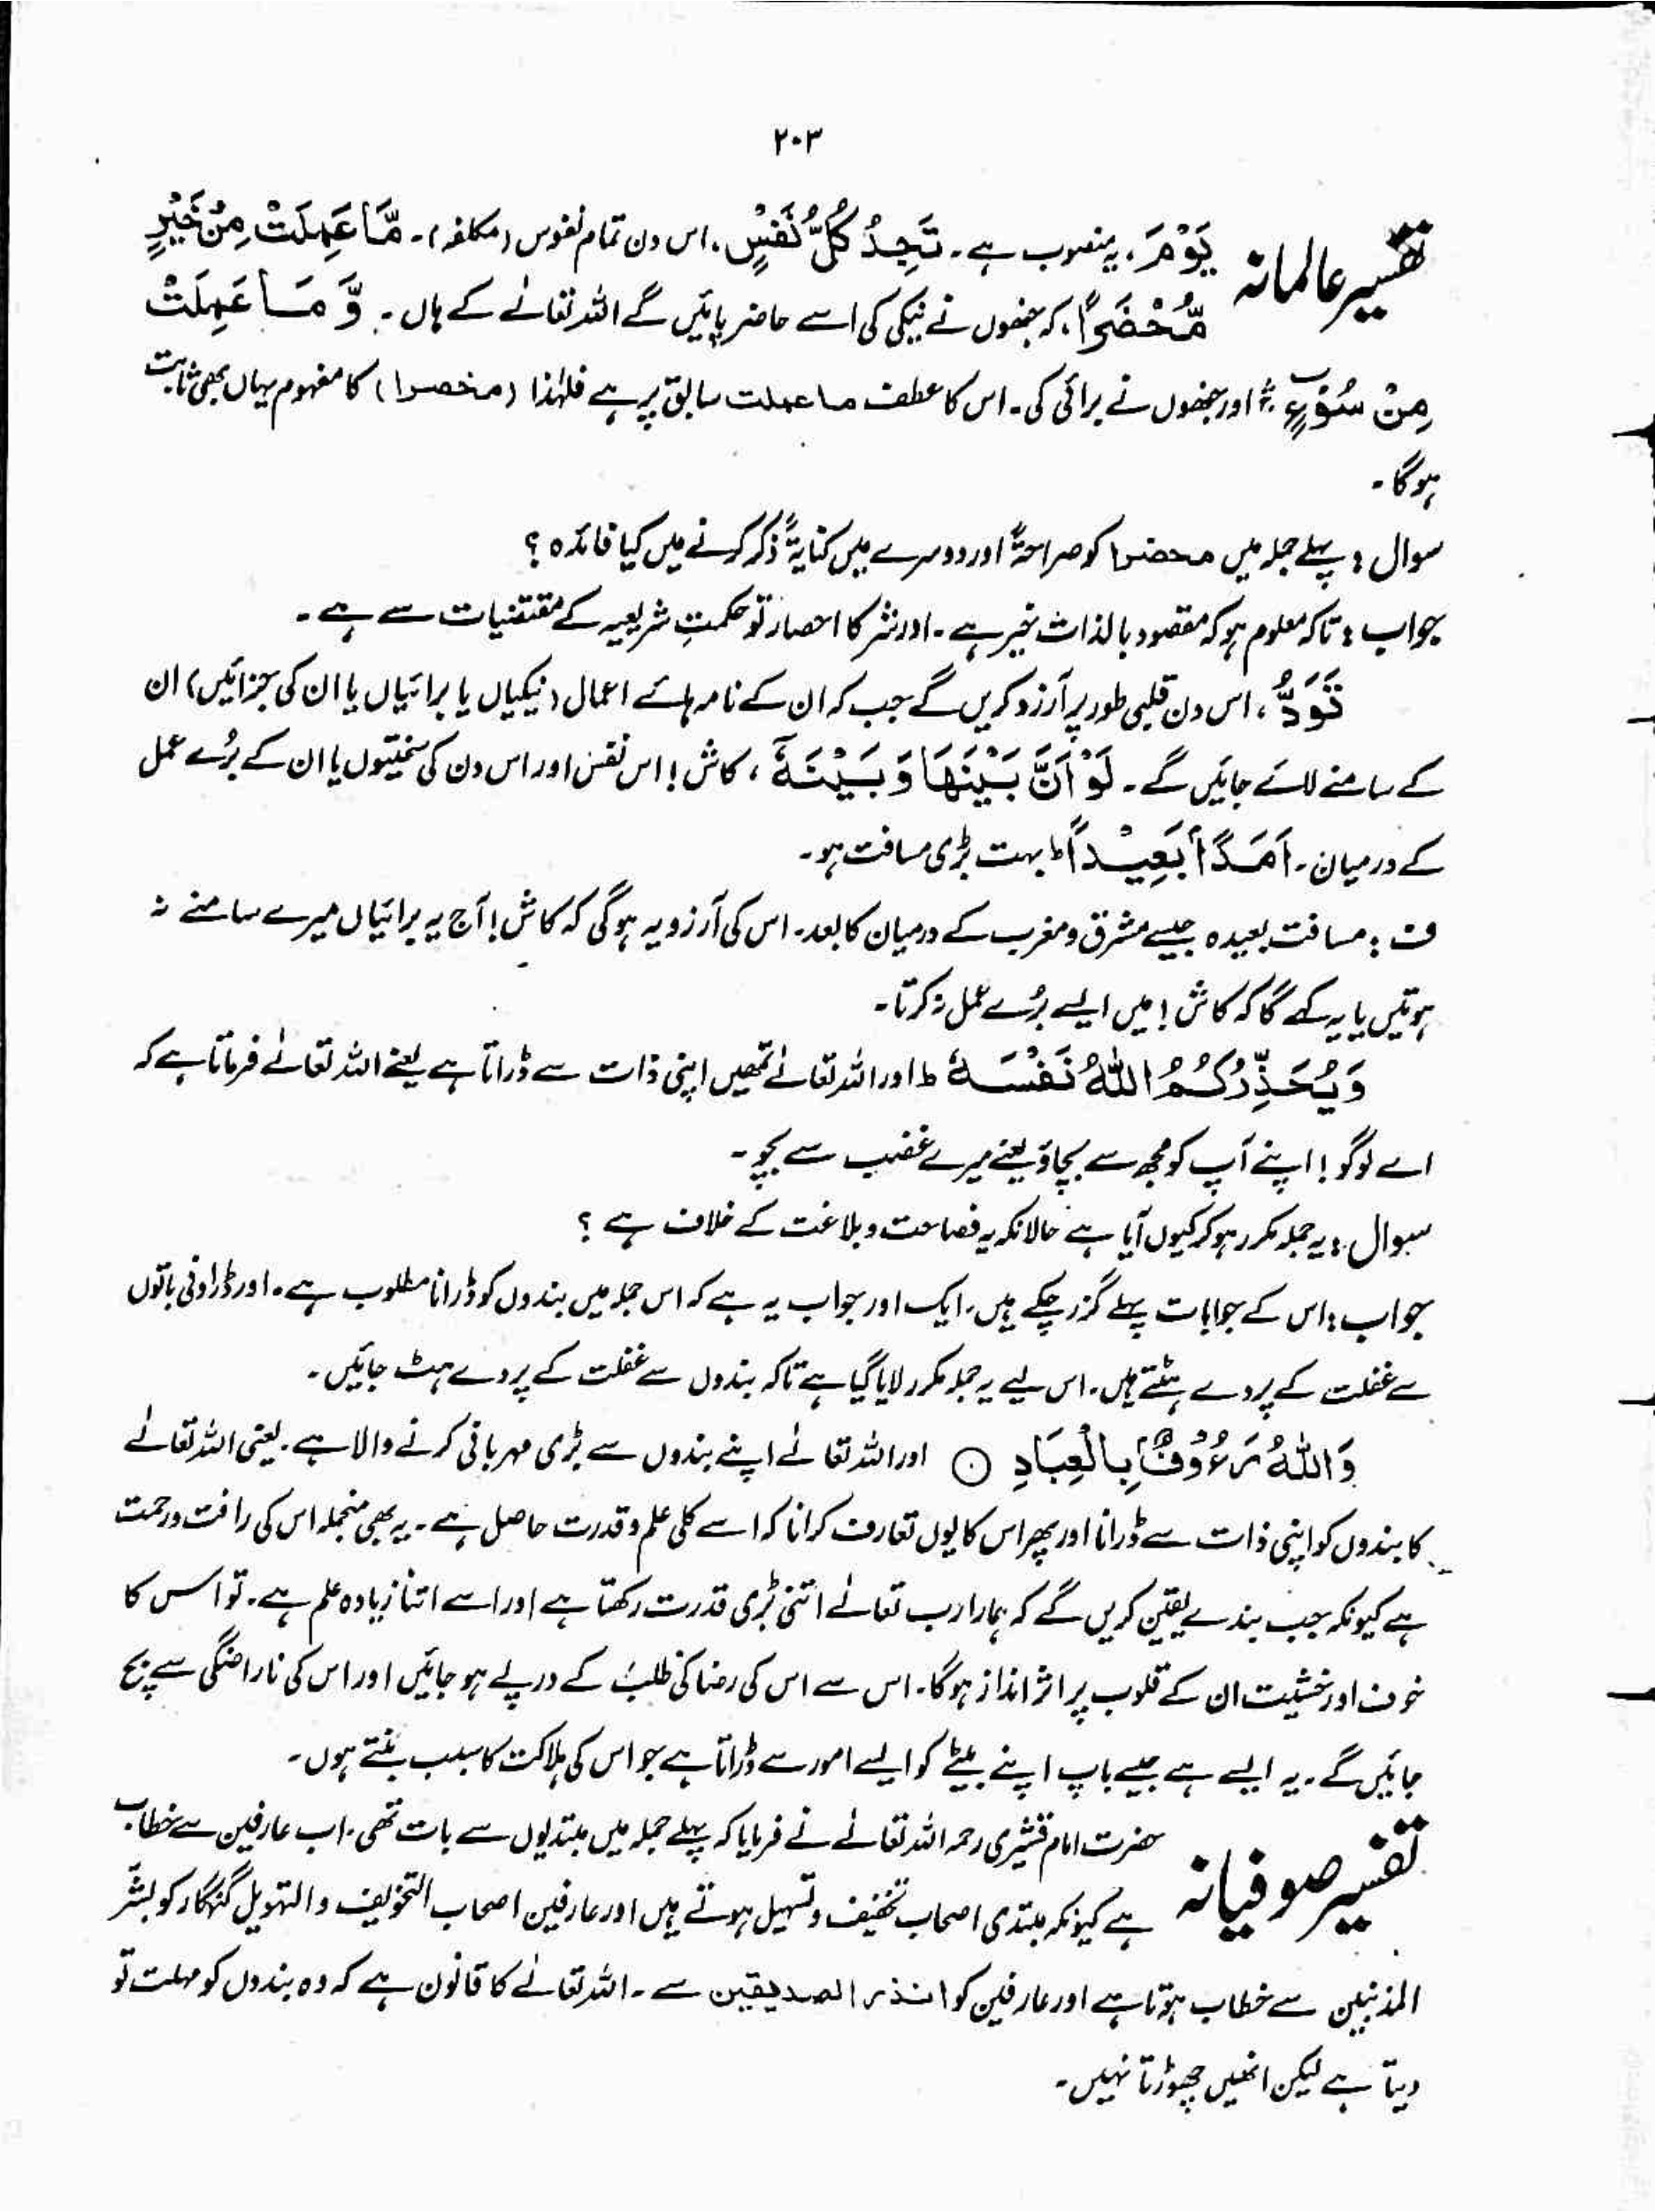 ۲۰۳
تفسیر عالمانہ یَوْمَ، یہ منصوب ہے۔ تَجِدُ کُلُّ نَفْسٍ، اس دن تمام نفوس (مکلفہ)۔ مَّا عَمِلَتْ مِنْ خَیْرٍ
مُّحْضَرًا، کہ جنھوں نے نیکی کی اسے حاضر پائیں گے اللہ تعالےٰ کے ہاں۔ وَّ مَا عَمِلَتْ
مِنْ سُوْٓءٍ ۛ اور جنھوں نے برائی کی۔ اس کا عطف ما عملت سابق پر ہے فلہٰذا (محضرا) کا مفہوم یہاں بھی ثابت
ہوگا۔
سوال : پہلے جملہ میں محضرا کو صراحۃً اور دوسرے میں کنایۃً ذکر کرنے میں کیا فائدہ ؟
جواب : تاکہ معلوم ہو کہ مقصود بالذات خیر ہے۔ اور شر کا احضار تو حکمتِ شریعیہ کے مقتضیات سے ہے۔
تَوَدُّ، اس دن قلبی طور پر آرزو کریں گے جب کہ ان کے نامہ ہائے اعمال (نیکیاں یا برائیاں یا ان کی جزائیں) ان
کے سامنے لائے جائیں گے۔ لَوْ اَنَّ بَیْنَهَا وَ بَیْنَهٗٓ، کاش! اس نفس اور اس دن کی سختیوں یا ان کے بُرے عمل
کے درمیان۔ اَمَدًۢا بَعِیْدًا ؕ بہت بڑی مسافت ہو۔
ف : مسافت بعیدہ جیسے مشرق و مغرب کے درمیان کا بعد۔ اس کی آرزو یہ ہوگی کہ کاش! آج یہ برائیاں میرے سامنے نہ
ہوتیں یا یہ کہے گا کہ کاش! میں ایسے بُرے عمل نہ کرتا۔
وَیُحَذِّرُکُمُ اللّٰهُ نَفْسَهٗ ؕ اور اللہ تعالےٰ تمھیں اپنی ذات سے ڈراتا ہے یعنے اللہ تعالےٰ فرماتا ہے کہ
اے لوگو! اپنے آپ کو مجھ سے بچاؤ یعنے میرے غضب سے بچو۔
سوال : یہ جملہ مکرر ہو کر کیوں آیا ہے حالانکہ یہ فصاحت و بلاغت کے خلاف ہے ؟
جواب : اس کے جوابات پہلے گزر چکے ہیں، ایک اور جواب یہ ہے کہ اس جملہ میں بندوں کو ڈرانا مطلوب ہے۔ اور ڈراونی باتوں
سے غفلت کے پردے ہٹتے ہیں۔ اس لیے یہ جملہ مکرر لایا گیا ہے تاکہ بندوں سے غفلت کے پردے ہٹ جائیں۔
وَاللّٰهُ رَءُوْفٌۢ بِالْعِبَادِ ○ اور اللہ تعالےٰ اپنے بندوں سے بڑی مہربانی کرنے والا ہے۔ یعنی اللہ تعالےٰ
کا بندوں کو اپنی ذات سے ڈرانا اور پھر اس کا یوں تعارف کرانا کہ اسے کلی علم و قدرت حاصل ہے۔ یہ بھی منجملہ اس کی رافت و رحمت
ہے کیونکہ جب بندے یقین کریں گے کہ ہمارا رب تعالےٰ اتنی بڑی قدرت رکھتا ہے اور اسے اتنا زیادہ علم ہے۔ تو اس کا
خوف اور خشیت ان کے قلوب پر اثر انداز ہوگا۔ اس سے اس کی رضا کی طلب کے درپے ہو جائیں اور اس کی ناراضگی سے بچ
جائیں گے۔ یہ ایسے ہے جیسے باپ اپنے بیٹے کو ایسے امور سے ڈراتا ہے جو اس کی ہلاکت کا سبب بنتے ہوں۔
تفسیر صوفیانہ حضرت امام قشیری رحمہ اللہ تعالےٰ نے فرمایا کہ پہلے جملہ میں مبتدیوں سے بات تھی۔ اب عارفین سے خطاب
ہے کیونکہ مبتدی اصحاب تخفیف و تسہیل ہوتے ہیں اور عارفین اصحاب التخویف و التہویل گنہگار کو بشّر
المذنبین سے خطاب ہوتا ہے اور عارفین کو انذر الصدیقین سے۔ اللہ تعالےٰ کا قانون ہے کہ وہ بندوں کو مہلت تو
دیتا ہے لیکن انھیں چھوڑتا نہیں۔